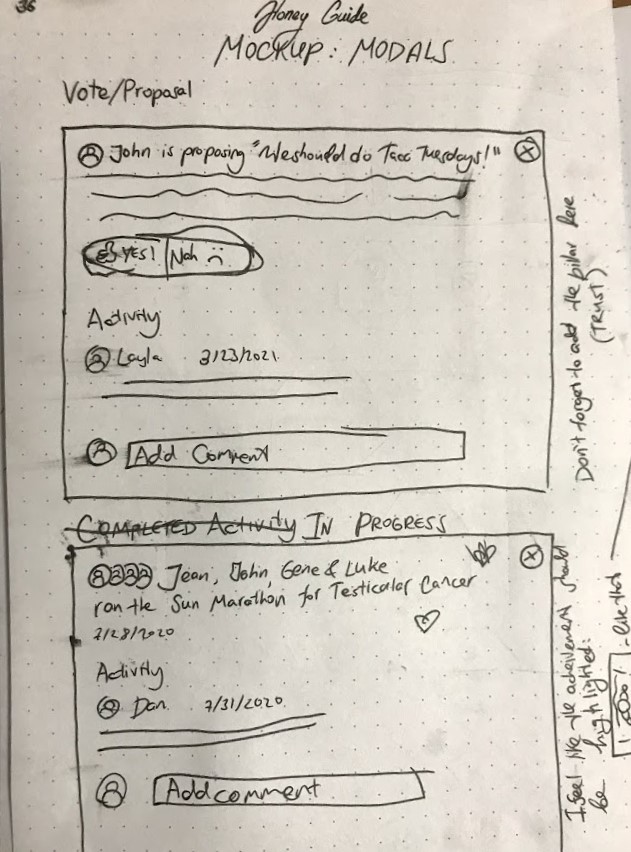 36
Honey Guide
MOCKUP: MODALS
Vote/Proposal
John is proposing "We should do Taco Tuesdays!"
X
YES! Nah
Activity
Layla 3/23/2021
Add Comment
Don't forget to add the pillar here
(TRUST)
COMPLETED Activity IN PROGRESS
Jean, John, Gene & Luke
X
ran the Sun Marathon for Testicular Cancer
7/28/2020
Activity
Dan 7/31/2020
Add comment
I feel like the achievement should
be highlighted:
- like that